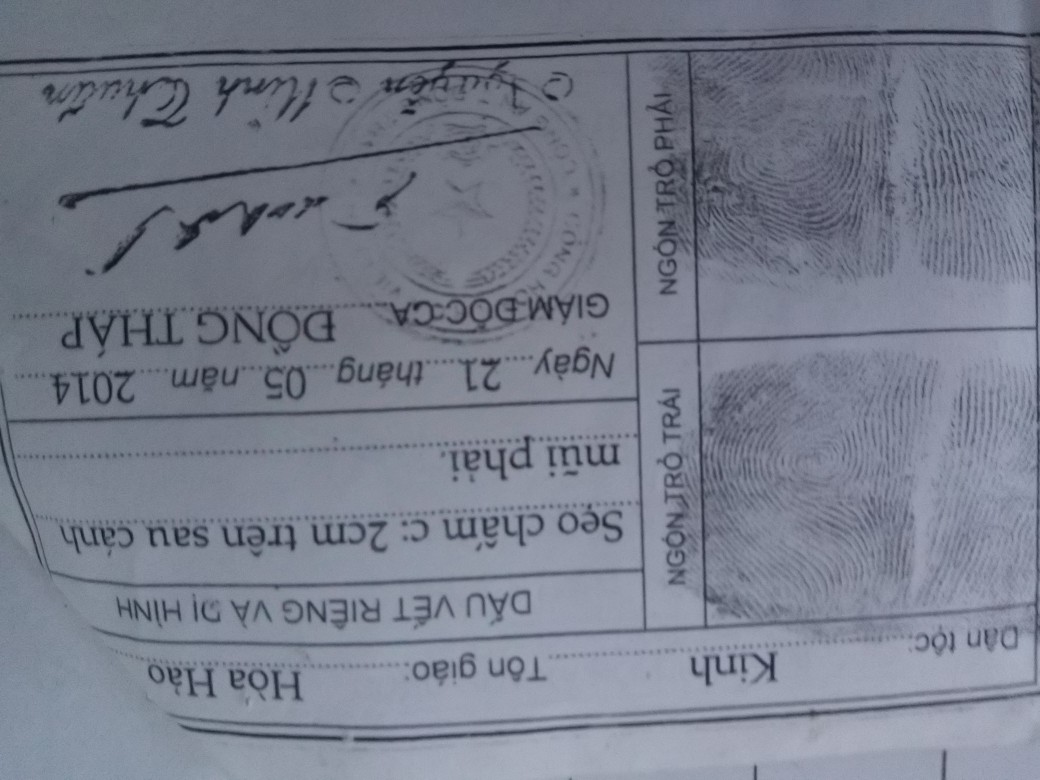 Dân tộc: Kinh Tôn giáo: Hòa Hảo
DẤU VẾT RIÊNG VÀ DỊ HÌNH
Sẹo chấm c: 2cm trên sau cánh
mũi phải.
NGÓN TRỎ TRÁI
NGÓN TRỎ PHẢI
Ngày 21 tháng 05 năm 2014
GIÁM ĐỐC CA ĐỒNG THÁP
Nguyễn Minh Thuấn